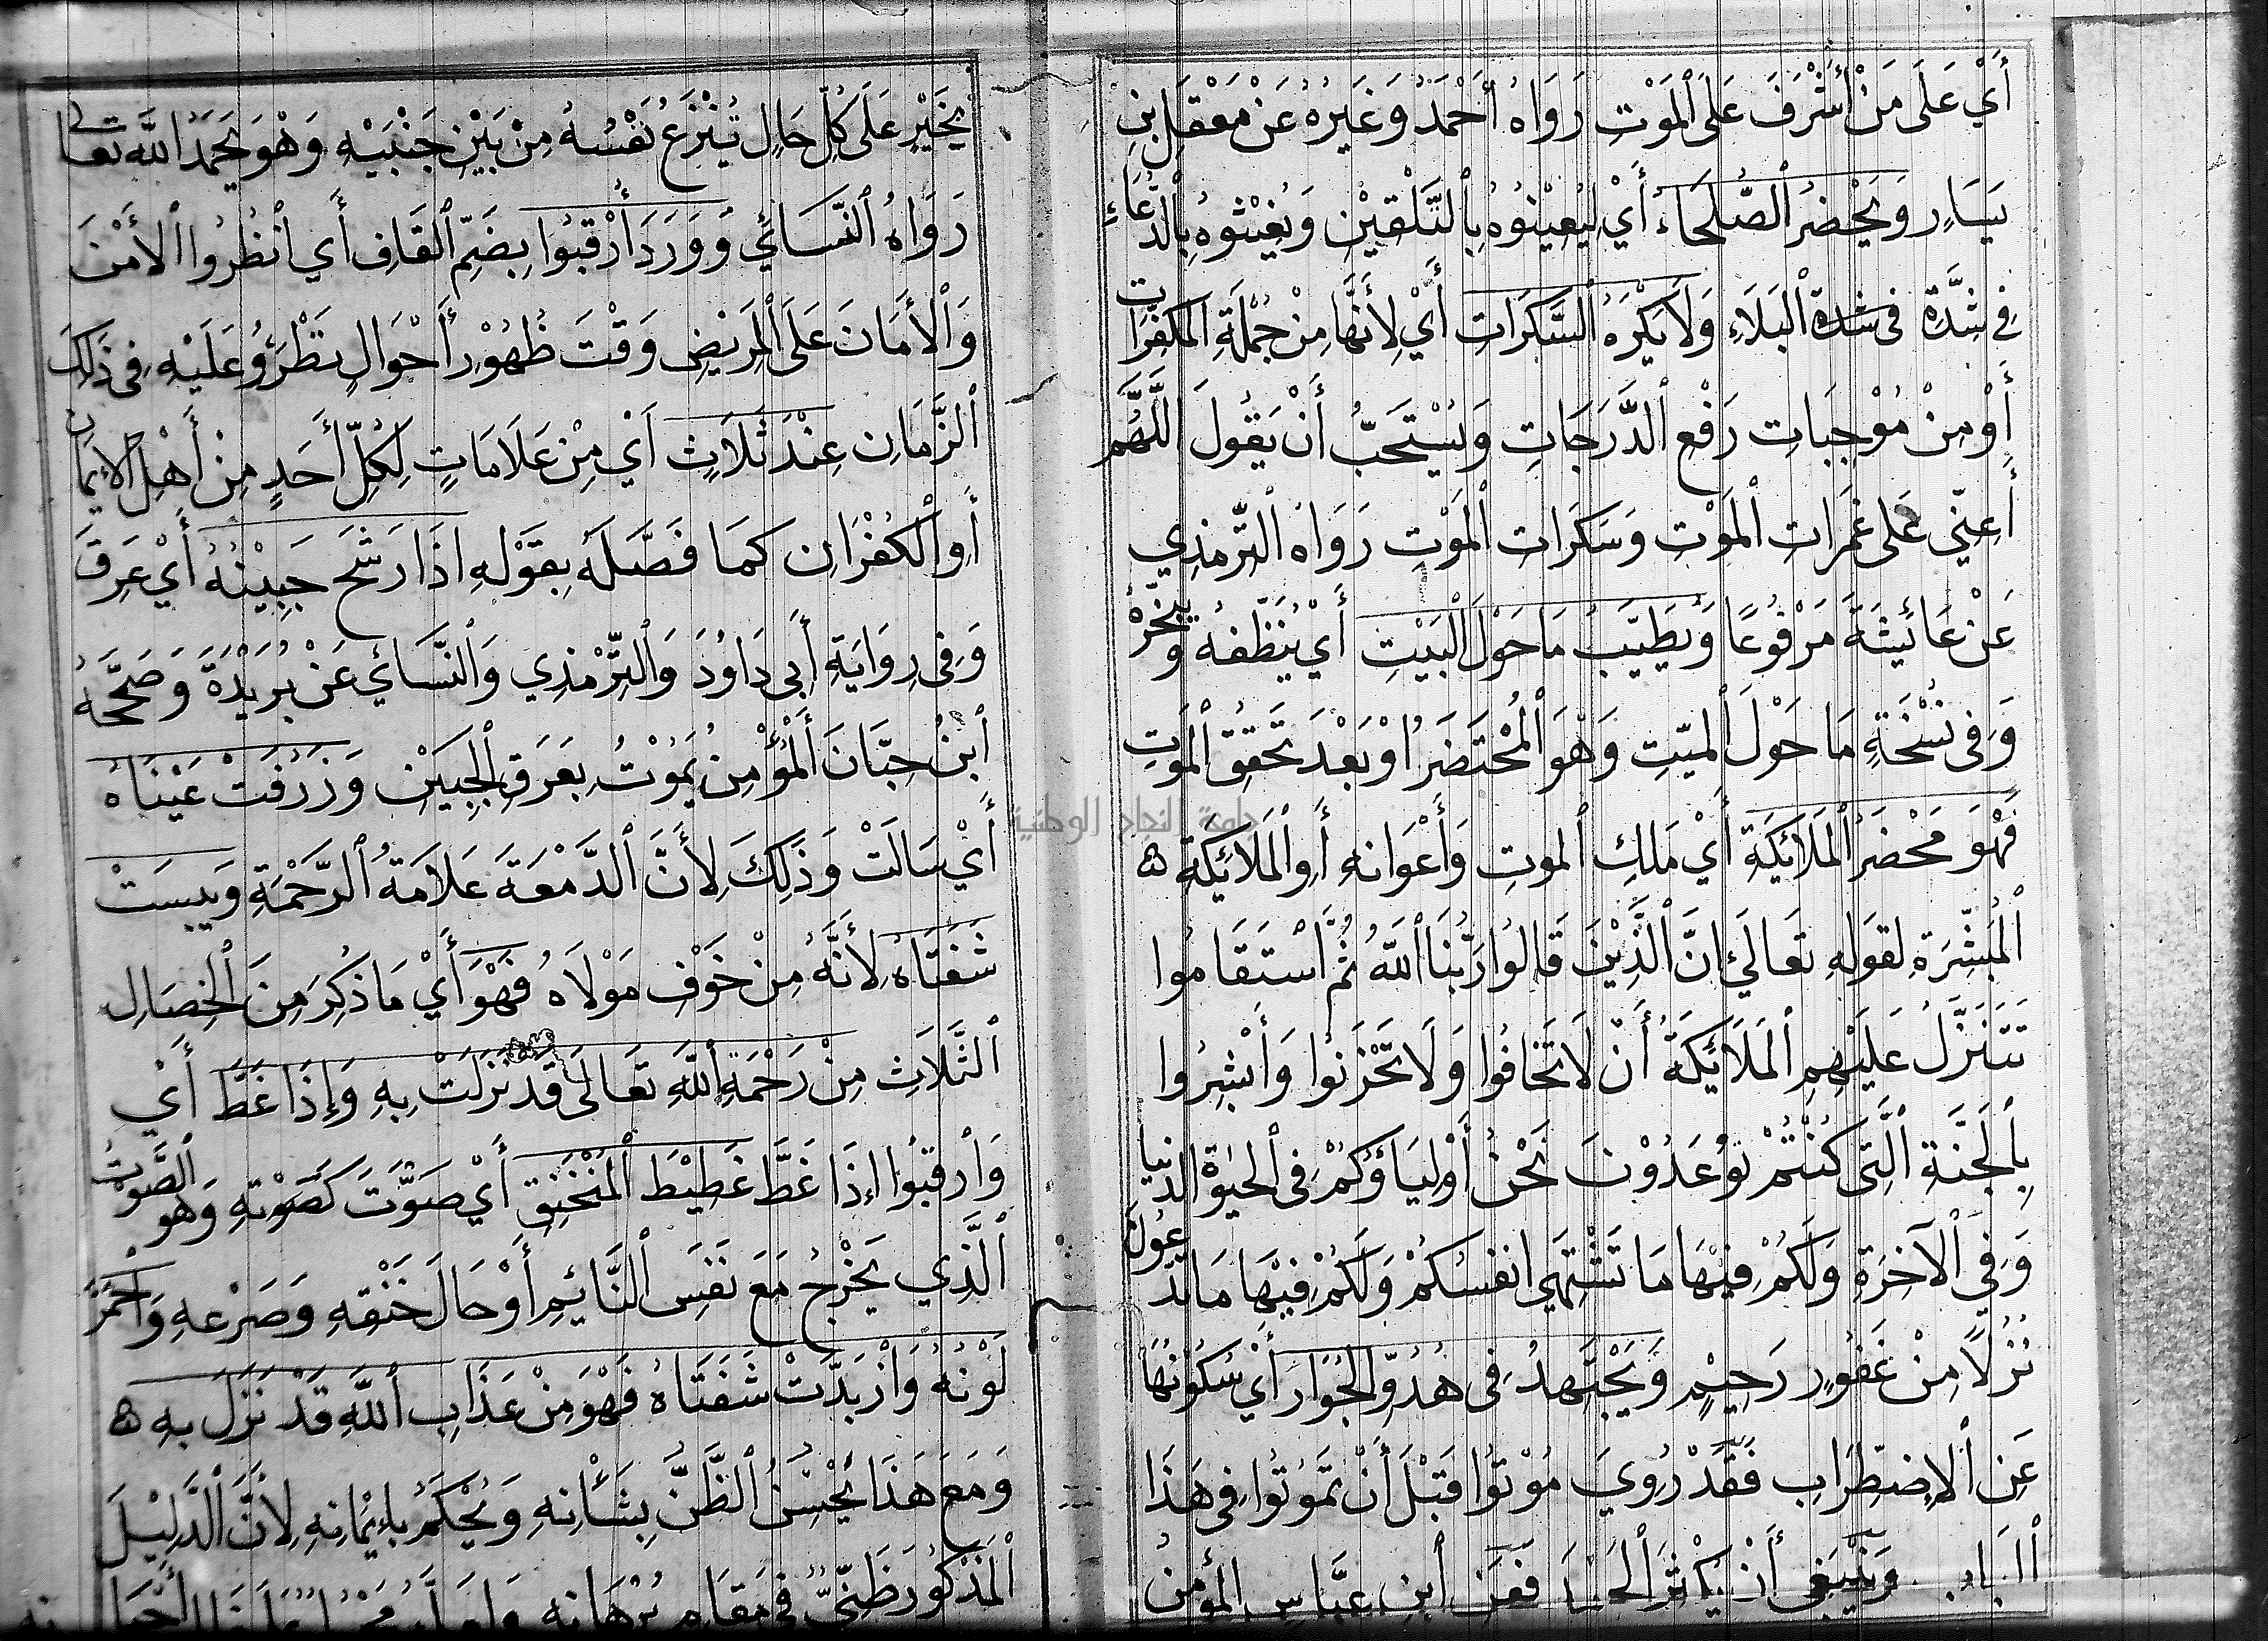 أَيْ عَلَى مَنْ أَشْرَفَ عَلَى ٱلْمَوْتِ رَوَاهُ أَحْمَدُ وَغَيْرُهُ عَنْ مَعْقِلِ بْنِ
يَسَارٍ وَيَحْضُرُ ٱلصُّلَحَاءُ أَيْ لِيُعِيْنُوْهُ بِٱلتَّلْقِيْنِ وَيُغِيْثُوْهُ بِٱلدُّعَاءِ
فِي شِدَّةِ فى شدة ٱلْبَلَاءِ وَلَا يَكْرَهُ ٱلسَّكَرَاتِ أَيْ لِأَنَّهَا مِنْ جُمْلَةِ ٱلمكفرات
أَوْ مِنْ مُوْجِبَاتِ رَفْعِ ٱلدَّرَجَاتِ وَيُسْتَحَبُّ أَنْ يَقُولَ ٱللَّهُمَّ
أَعِنِّي عَلَى غَمَرَاتِ ٱلْمَوْتِ وَسَكَرَاتِ ٱلْمَوْتِ رَوَاهُ ٱلتِّرْمِذِي
عَنْ عَائِشَةَ مَرْفُوْعًا وَيُطَيِّبُ مَا حَوْلَ ٱلْبَيْتِ أَيْ يُنَظِّفُهُ وَيُبَخِّرُهُ
وَفِى نُسْخَةٍ مَا حَوْلَ ٱلميّتِ وَهْوَ ٱلْمُحْتَضَرُ اوْ بَعْدَ تَحَقُّقِ ٱلْمَوْتِ
فَهْوَ مَحْضَرُ ٱلْمَلَائِكَةِ أَيْ مَلَكِ ٱلموتِ وَأَعْوَانِهِ أَوِ ٱلْمَلَائِكَةِ ۵
ٱلْمُبَشِّرَةِ لِقَوْلِهِ تَعَالَى إِنَّ ٱلَّذِيْنَ قَالُوا رَبُّنَا ٱللَّهُ ثُمَّ ٱسْتَقَامُوا
تَتَنَزَّلُ عَلَيْهِمِ ٱلْمَلَائِكَةُ أَنْ لَا تَخَافُوا وَلَا تَحْزَنُوا وَأَبْشِرُوا
بِٱلْجَنَّةِ ٱلَّتِى كُنْتُمْ تُوْعَدُوْنَ نَحْنُ أَوْلِيَاؤُكُمْ فِى ٱلْحَيٰوةِ ٱلدنيا
وَفِي ٱلْآخِرَةِ وَلَكُمْ فِيْهَا مَا تَشْتَهِي انْفُسُكُمْ وَلَكُمْ فِيْهَا مَا تَدَّعُوْنَ
نُزُلًا مِنْ غَفُوْرٍ رَحِيْمٍ وَيَجْتَهِدُ فِى هُدُوِّ ٱلْجُوَارِ أَيْ سُكُوْنِهَا
عَنِ ٱلْإِضْطِرَابِ فَقَدْ رُوِيَ مُوْتُوْا قَبْلَ أَنْ تَمُوْتُوا فِى هَذَا
ٱلْبَابِ وَيَنْبَغِى أَنْ يُكْثِرَ ٱلْحَمْدَ فَعَنِ ٱبْنِ عَبَّاسٍ المؤمن
بِخَيْرٍ عَلَى كُلِّ حَالٍ تُنْزَعُ نَفْسُهُ مِنْ بَيْنِ جَنْبَيْهِ وَهْوَ يَحْمَدُ اللَّهَ تعالى
رَوَاهُ ٱلنَّسَائِيُّ وَوَرَدَ أُرْقُبُوا بِضَمِّ ٱلْقَافِ أَي ٱنْظُرُوا ٱلْأَمْنَ
وَٱلْأَمَانَ عَلَى ٱلْمَرِيْضِ وَقْتَ ظُهُوْرِ أَحْوَالٍ تَطْرَؤُ عَلَيْهِ فِى ذَلِكَ
ٱلزَّمَانِ عِنْدَ ثَلَاثٍ أَيْ مِنْ عَلَامَاتٍ لِكُلِّ أَحَدٍ مِنْ أَهْلِ ٱلْإِيمَانِ
أَوِ ٱلْكُفْرَانِ كَمَا فَصَّلَهُ بِقَوْلِهِ اذَا رَشَحَ جَبِيْنُهُ أَيْ عَرِقَ
وَفِى رِوَايَةِ أَبِى دَاوُدَ وَٱلتِّرْمِذِي وَٱلنَّسَائِي عَنْ بُرَيْدَةَ وَصَحَّحَهُ
ٱبْنُ حِبَّانَ أَلْمُؤْمِنُ يَمُوْتُ بِعَرَقِ ٱلْجَبِيْنِ وَذَرَفَتْ عَيْنَاهُ
أَيْ سَالَتْ وَذَلِكَ لِأَنَّ ٱلدَّمْعَةَ عَلَامَةُ ٱلرَّحْمَةِ وَيَبِسَتْ
شَفَتَاهُ لِأَنَّهُ مِنْ خَوْفِ مَوْلَاهُ فَهْوَ أَيْ مَا ذُكِرَ مِنَ ٱلْخِصَالِ
ٱلثَّلَاثِ مِنْ رَحْمَةِ ٱللَّهِ تَعَالَى قَدْ نَزَلَتْ بِهِ وَإِذَا غَطَّ أَيْ
وَٱرْقُبُوا إِذَا غَطَّ غَطِيْطَ ٱلْمُنْخَنِقِ أَيْ صَوَّتَ كَصَوْتِهِ وَهُوَ ٱلصَّوْتُ
ٱلَّذِي يَخْرُجُ مَعَ نَفَسِ ٱلنَّائِمِ أَوْ حَالَ خَنْقِهِ وَصَرْعِهِ وَٱحْمَرَّ
لَوْنُهُ وَٱزْبَدَّتْ شَفَتَاهُ فَهْوَ مِنْ عَذَابِ ٱللَّهِ قَدْ نَزَلَ بِهِ ۵
وَمَعَ هَذَا يُحْسِنُ ٱلظَّنَّ بِشَأْنِهِ وَيُحْكَمُ بِإِيْمَانِهِ لِأَنَّ ٱلدَّلِيْلَ
ٱلْمَذْكُوْرَ ظَنِّيٌّ فِى مَقَامِ بُرْهَانِهِ
جامعة النجاح الوطنية